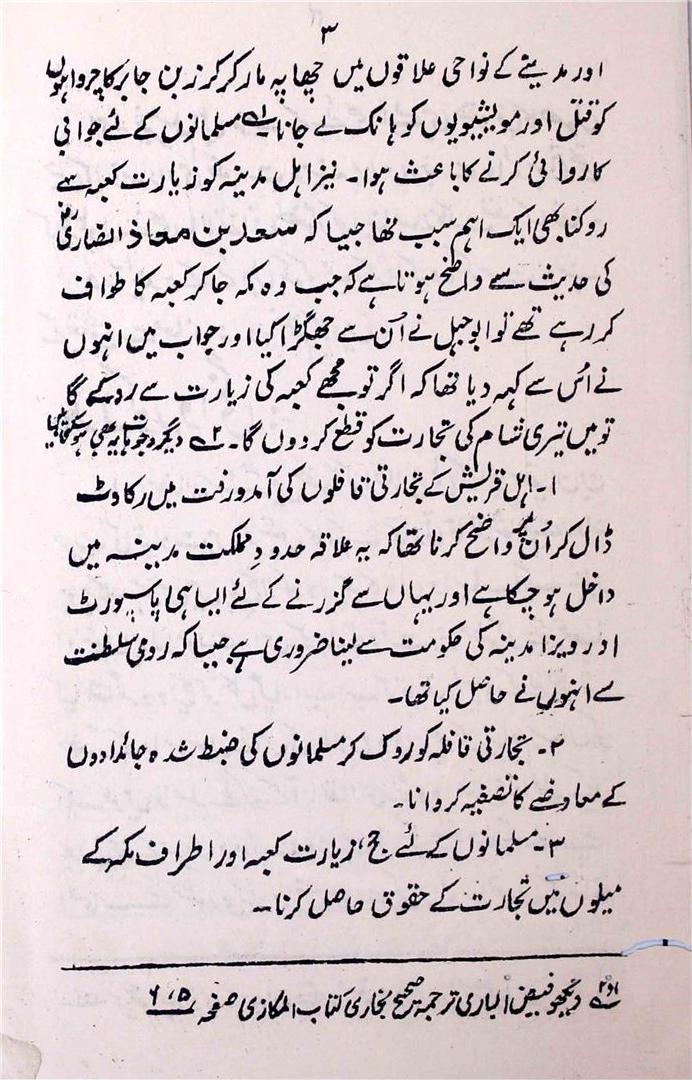 ۳
اور مدینے کے نواحی علاقوں میں چھاپہ مار کر کرز بن جابر کا چرواہوں
کو قتل اور مویشیوں کو ہانک لے جانا ؂۱ مسلمانوں کے لئے جوابی
کاروائی کرنے کا باعث ہوا۔ نیز اہل مدینہ کو زیارت کعبہ سے
روکنا بھی ایک اہم سبب تھا جیسا کہ سعد بن معاذ انصاریؓ
کی حدیث سے واضح ہوتا ہے کہ جب وہ مکہ جا کر کعبہ کا طواف
کر رہے تھے تو ابو جہل نے اُن سے جھگڑا کیا اور جواب میں انہوں
نے اُس سے کہہ دیا تھا کہ اگر تو مجھے کعبہ کی زیارت سے روکے گا
تو میں تیری شام کی تجارت کو قطع کر دوں گا۔ ؂۲ دیگر وجوہات یہ بھی ہو سکتی ہیں
۱۔ اہل قریش کے تجارتی قافلوں کی آمد و رفت میں رکاوٹ
ڈال کر اُن پر واضح کرنا تھا کہ یہ علاقہ حدودِ مملکت مدینہ میں
داخل ہو چکا ہے اور یہاں سے گزرنے کے لئے ایسا ہی پاسپورٹ
اور ویزا مدینہ کی حکومت سے لینا ضروری ہے جیسا کہ رومی سلطنت
سے انہوں نے حاصل کیا تھا۔
۲۔ تجارتی قافلہ کو روک کر مسلمانوں کی ضبط شدہ جائدادوں
کے معاوضے کا تصفیہ کروانا۔
۳۔ مسلمانوں کے لئے حج، زیارت کعبہ اور اطراف مکہ کے
میلوں میں تجارت کے حقوق حاصل کرنا۔
؂۱و۲ دیکھو فیض الباری ترجمہ صحیح بخاری کتاب المکازی صفحہ ۵، ۶